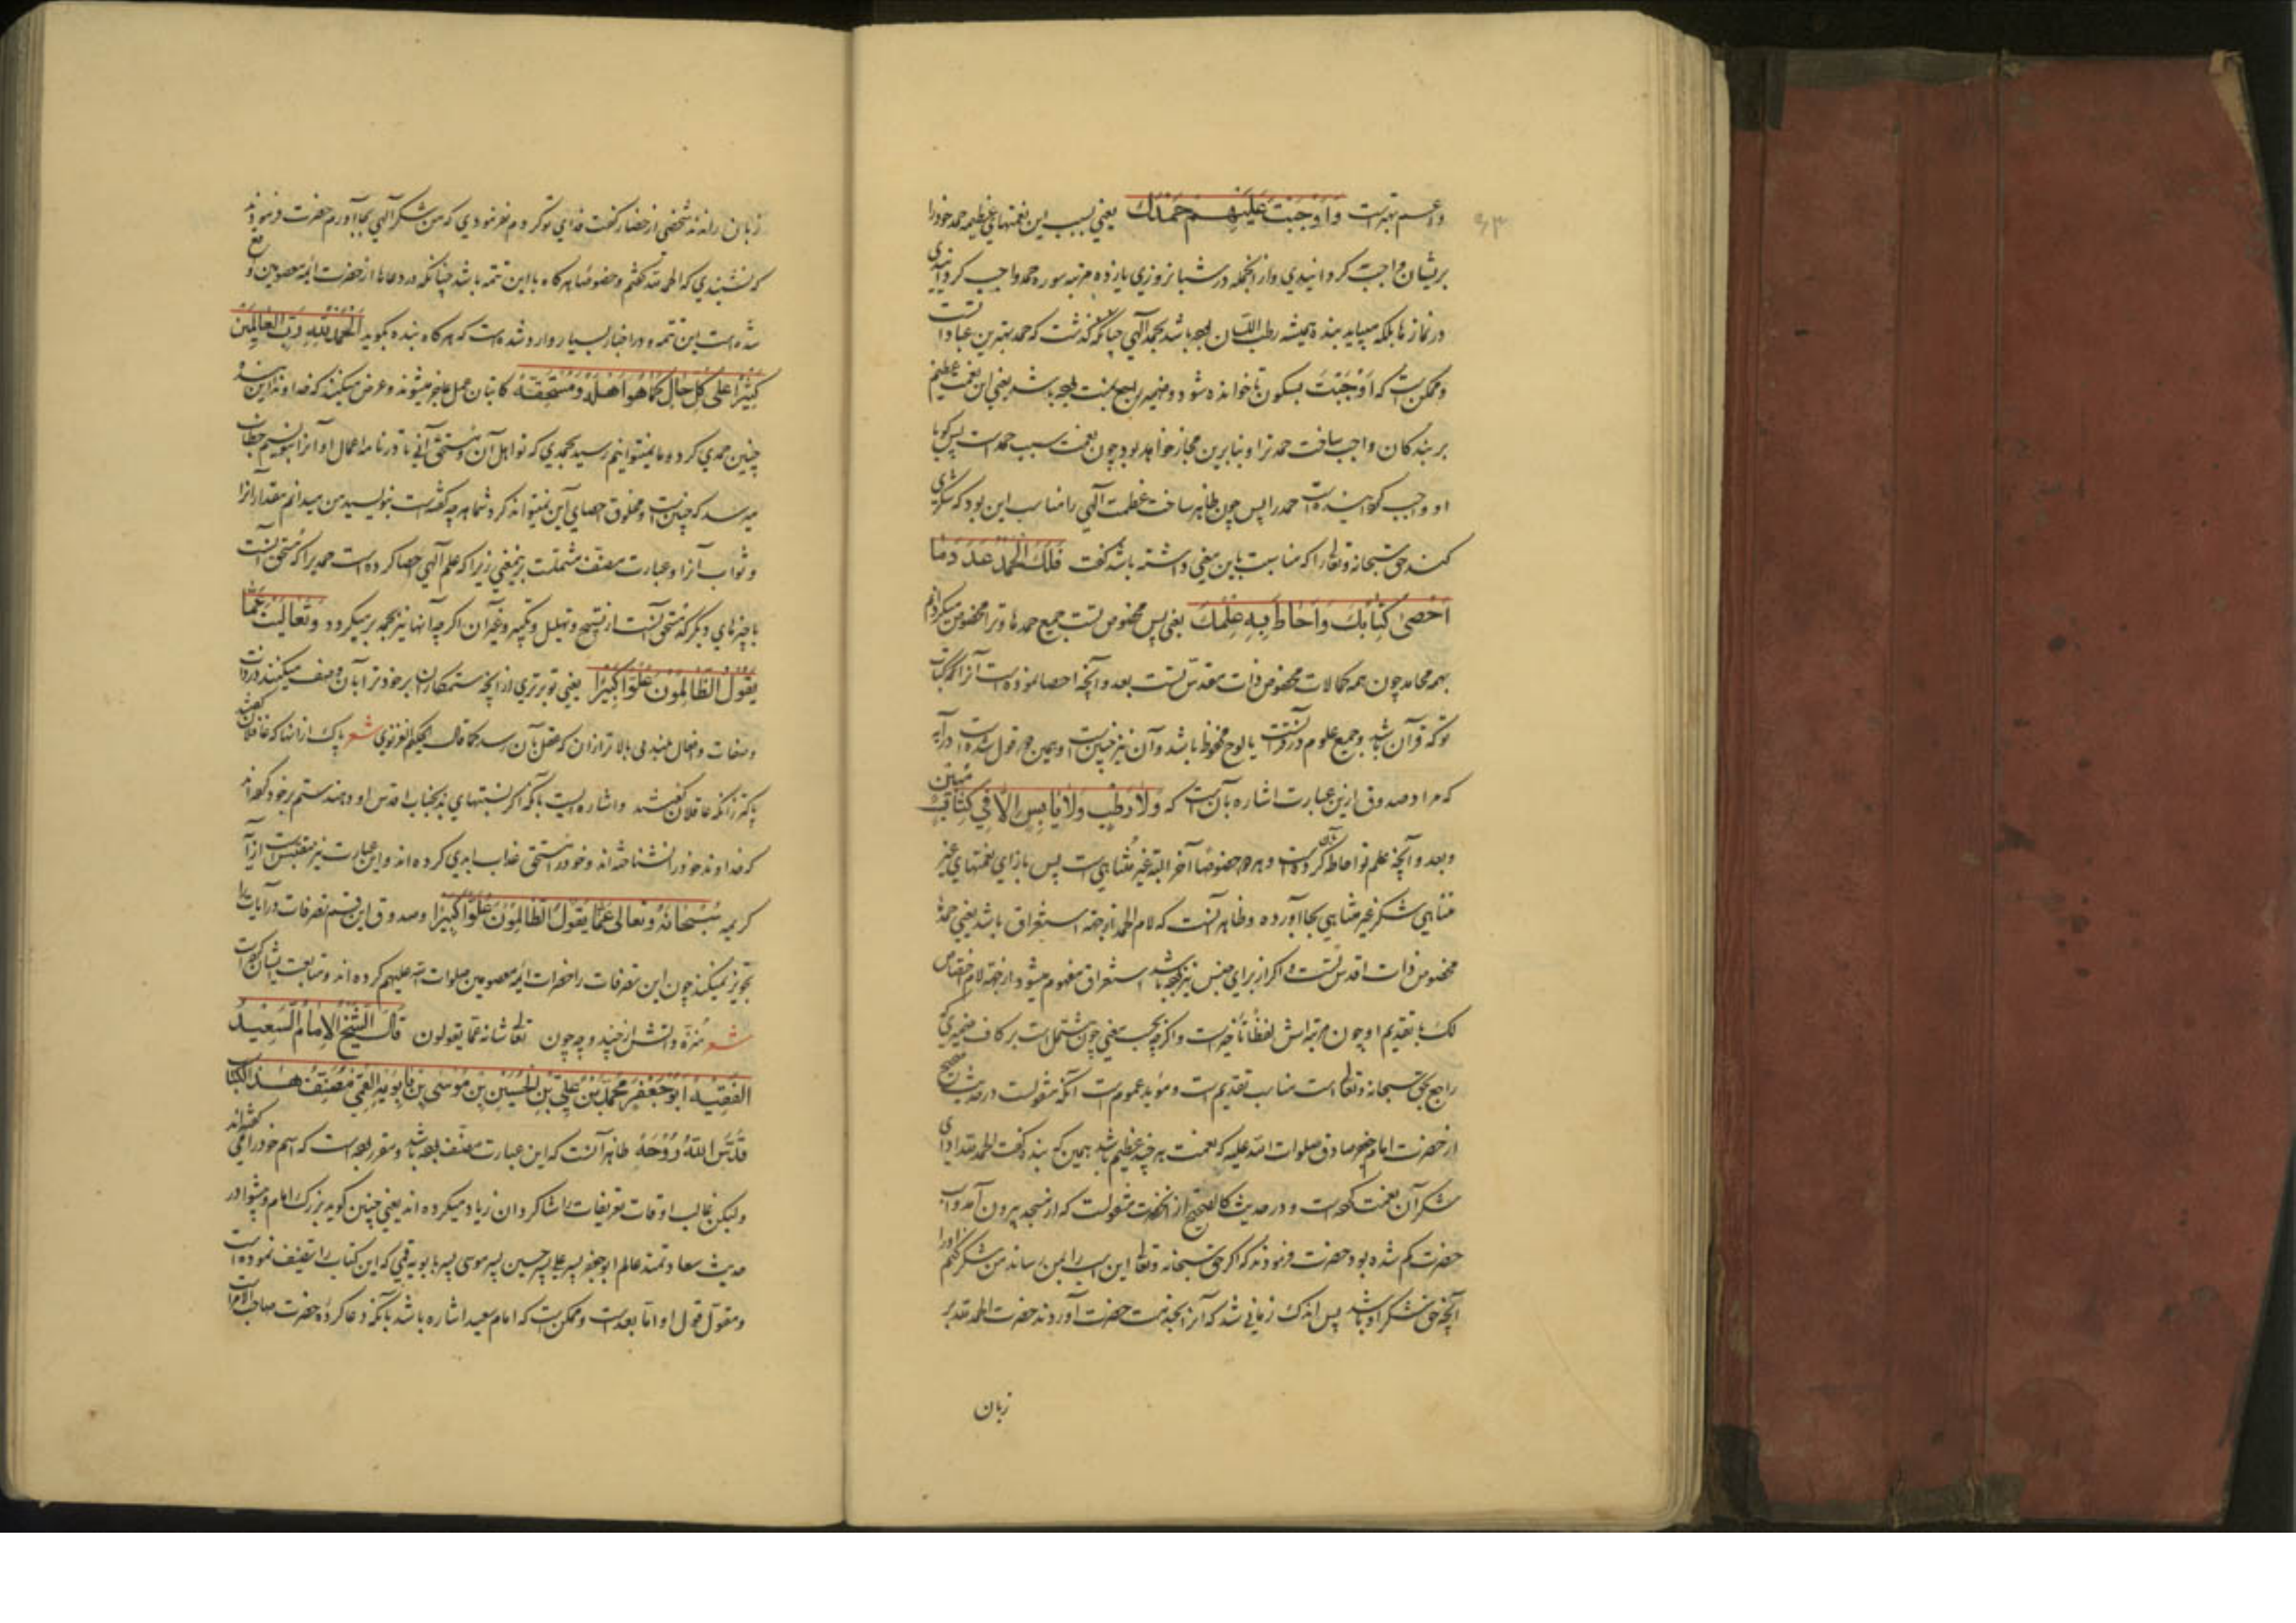 و اعم بهتر است وَاَوْجَبْتَ عَلَيْهِمْ حَمْدَكَ يعني بسبب اين نعمتهاي عظيمه حمد خود را
بريشان واجب كردانيدي و از انجمله در شبانروزي پانزده مرتبه سوره حمد واجب كردانيدي
در نمازها بلكه ميبايد بنده هميشه رطب اللسان بوده باشد بحمد آلهي چنانكه گذشت كه حمد بهترين عبادات است
و ممكن است كه اَوْجَبَتْ بسكون تا خوانده شود و ضمير راجع بنعمت بوده باشد يعني اين نعمت عظيم
بر بندكان واجب ساخت حمد ترا و بنابرين مجاز خواهد بود چون نعمت سبب حمد است پس گويا
او واجب گردانيده است حمد را پس چون ظاهر ساخت عظمت آلهي را مناسب اين بود كه شكري
كند حق سبحانه و تعالي را كه مناسبت باين معني داشته باشد گفت فَلَكَ الْحَمْدُ عَدَدَ مَا
اَحْصٰى كِتَابُكَ وَاَحَاطَ بِهِ عِلْمُكَ يعني پس مخصوص تست جميع حمدها و ترا مخصوص ميگردانم
بهمه محامد چون همه كمالات مخصوص ذات مقدس تست بعدد آنچه احصا نموده است آنرا كتاب
تو كه قرآن باشد و جميع علوم در قرآنست يا لوح محفوظ باشد و آن نيز چنين است و بهمين دو قول شده است در آيه
كه مراد صدوق ازين عبارت اشاره بآن است كه وَلَا رَطْبٍ وَلَا يَابِسٍ اِلَّا فِي كِتَابٍ مُبِينٍ
و بعدد آنچه علم تو احاطه بآن كرده است و هر دو خصوصا آخر البته غير متناهي است پس بازاي نعمتهاي غير
متناهي شكر غير متناهي بجا آورده و ظاهر آنست كه لام الحمد از جهة استغراق باشد يعني حمدها
مخصوص ذات اقدس تست و اگر از براي جنس نيز بوده باشد استغراق مفهوم ميشود از جهة لام اختصاص
لك با تقديم او چون مرتبه اش لفظا تأخير است و اگرچه بحسب معني چون مشتمل است بر كاف ضميري كه
راجع بحق سبحانه و تعالي است مناسب تقديم است و مؤيد عموم است آنكه منقولست در حديث صحيح
از حضرت امام جعفر صادق صلوات الله عليه كه نعمت هر چند عظيم باشد همين كه بنده گفت الحمد لله اداي
شكر آن نعمت كرده است و در حديث كالصحيح از آنحضرت منقولست كه از مسجد بيرون آمد و اسب
حضرت گم شده بود حضرت فرمودند كه اگر حق سبحانه و تعالي اين اسب را بمن رساند من شكر كنم او را
آنچه حق شكر او باشد پس اندك زماني شد كه آنرا بخدمت حضرت آوردند حضرت الحمد لله بر
زبان
زبان راندند شخصي از حضار گفت فداي تو گردم نفرمودي كه من شكر آلهي بجا آورم حضرت فرمودند
كه نشنيدي كه الحمد لله گفتم و خصوصا هرگاه با اين تتمه باشد چنانكه در دعاها از حضرت ائمه معصومين واقع
شده است اين تتمه و در اخبار بسيار وارد شده است كه هرگاه بنده بگويد اَلْحَمْدُ لِلّٰهِ رَبِّ الْعَالَمِينَ
كَثِيرًا عَلٰى كُلِّ حَالٍ كَمَا هُوَ اَهْلُهُ وَمُسْتَحِقُّهُ كاتبان عمل عاجز ميشوند و عرض ميكنند كه خداوندا اين بنده
چنين حمدي كرد و ما نميتوانيم رسيد بحمدي كه تو اهل آن و مستحق آني تا در نامه اعمال او آنرا بنويسيم خطاب
ميرسد كه چنين است و مخلوق احصاي اين نميتواند كرد شما هر چه گفته است بنويسيد من ميدانم مقدار آنرا
و ثواب آنرا و عبارت مصنف مشتملست برينمعني زيرا كه علم آلهي احصا كرده است حمديرا كه مستحق آنست
با چيزهاي ديگر كه مستحق آنست از تسبيح و تهليل و تكبير و غير آن اگرچه آنها نيز بحمد بر ميگردد وَتَعَالَيْتَ عَمَّا
يَقُولُ الظَّالِمُونَ عُلُوًّا كَبِيرًا يعني تو برتري از آنچه ستمكاران بر خود ترا بآن وصف ميكنند در ذات
و صفات و افعال بلندي بالاتر از ان كه عقل بآن رسد كما قال الحكيم الغزنوي شعر پاك از آنها كه غافلان گفتند
پاكتر زانكه عاقلان گفتند و اشاره ايست بآنكه اگر نسبتهاي بد بجناب اقدس او دهند ستم بر خود كرده اند
كه خداوند خود را نشناخته اند و خود را مستحق عذاب ابدي كرده اند و اين عبارت نيز مقتبس است از آيه
كريمه سُبْحَانَهُ وَتَعَالٰى عَمَّا يَقُولُ الظَّالِمُونَ عُلُوًّا كَبِيرًا و صدوق اين قسم تصرفات در آيات را
تجويز ميكند چون اين تصرفات را حضرات ائمه معصومين صلوات الله عليهم كرده اند و متابعت ايشان كرده است
شعر منزه ذاتش از چند و چه و چون تعالي شانه عما يقولون قَالَ الشَّيْخُ الْاِمَامُ السَّعِيدُ
الْفَقِيهُ اَبُو جَعْفَرٍ مُحَمَّدُ بْنُ عَلِيِّ بْنِ الْحُسَيْنِ بْنِ مُوسَى بْنِ بَابَوَيْهِ الْقُمِّيُّ مُصَنِّفُ هٰذَا الْكِتَابِ
قَدَّسَ اللّٰهُ رُوحَهُ ظاهرا آنست كه اين عبارت مصنف بوده باشد و مقرر بوده است كه اسم خود را مي گفته اند
وليكن غالب اوقات تعريفات را شاگردان زياد ميكرده اند يعني چنين گويد بزرگ و امام و پيشوا در
حديث سعادتمند عالم ابو جعفر پسر علي پسر حسين پسر موسي پسر بابويه قمي كه اين كتاب را تصنيف نموده است
و مقول قول او اما بعد است و ممكن است كه امام سعيد اشاره باشد بآنكه دعا كرده حضرت صاحب الامر است